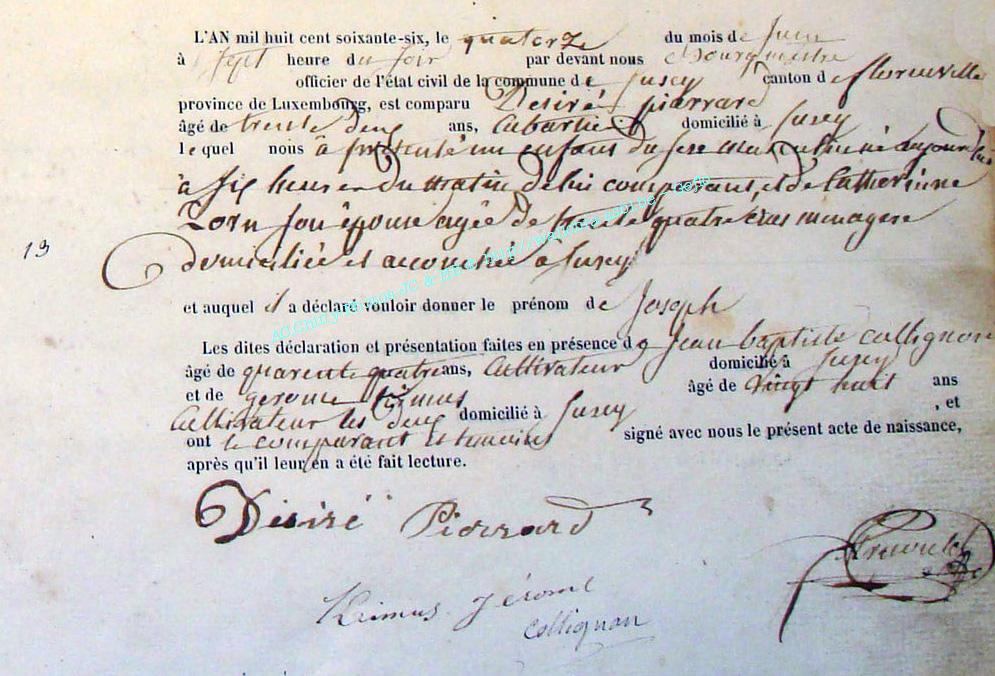 L'AN mil huit cent soixante-six, le quatorze du mois de Juin
à Sept heure du soir par devant nous Bourgmestre
officier de l'état civil de la commune de Jusey canton de florenville
province de Luxembourg, est comparu Desiré pierrard
âgé de trente deux ans, domicilié à Jusey
lequel nous à présenté un enfant du sexe masculin né aujourd'hui
à six heures du matin de lui comparant, et de Catherinne
son épouse agée de trente quatre ans ménagere
domiciliée et accouchée a Jusey
13
et auquel il a déclaré vouloir donner le prénom de Joseph
Les dites déclaration et présentation faites en présence de Jean baptiste collignon
âgé de quarente quatre ans, Cultivateur domicilié à Jusey
et de gerome âgé de vingt huit ans
Cultivateur les deux domicilié à Jusey , et
ont le comparant et temoins signé avec nous le présent acte de naissance,
après qu'il leur en a été fait lecture.
Désiré Pierrard
Jérome
Collignon